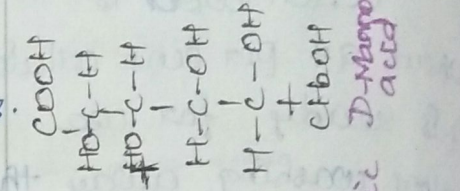 COOH
HO-C-H
HO-C-H
H-C-OH
H-C-OH
CH2OH
ic D-Manno
acid